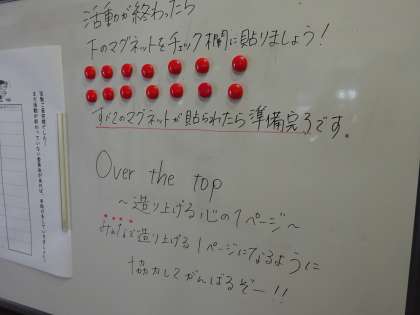 活動が終わったら
下のマグネットをチェック欄に貼りましょう!
すべてのマグネットが貼られたら準備完了です。
Over the top
~造り上げる心の1ページ~
みんなで造り上げる1ページになるように
協力してがんばるぞー!!